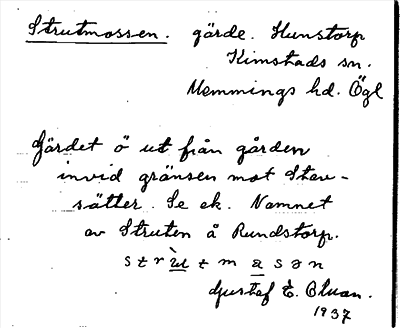 Strutmossen. gärde. Hunstorp
Kimstads sn.
Memmings hd. Ögl
Gärdet ö ut från gården
invid gränsen mot Stav-
sätter. Se ek. Namnet
av Struten å Rundstorp.
s t r ù t m a s ə n
Gustaf E. Bluan.
1937